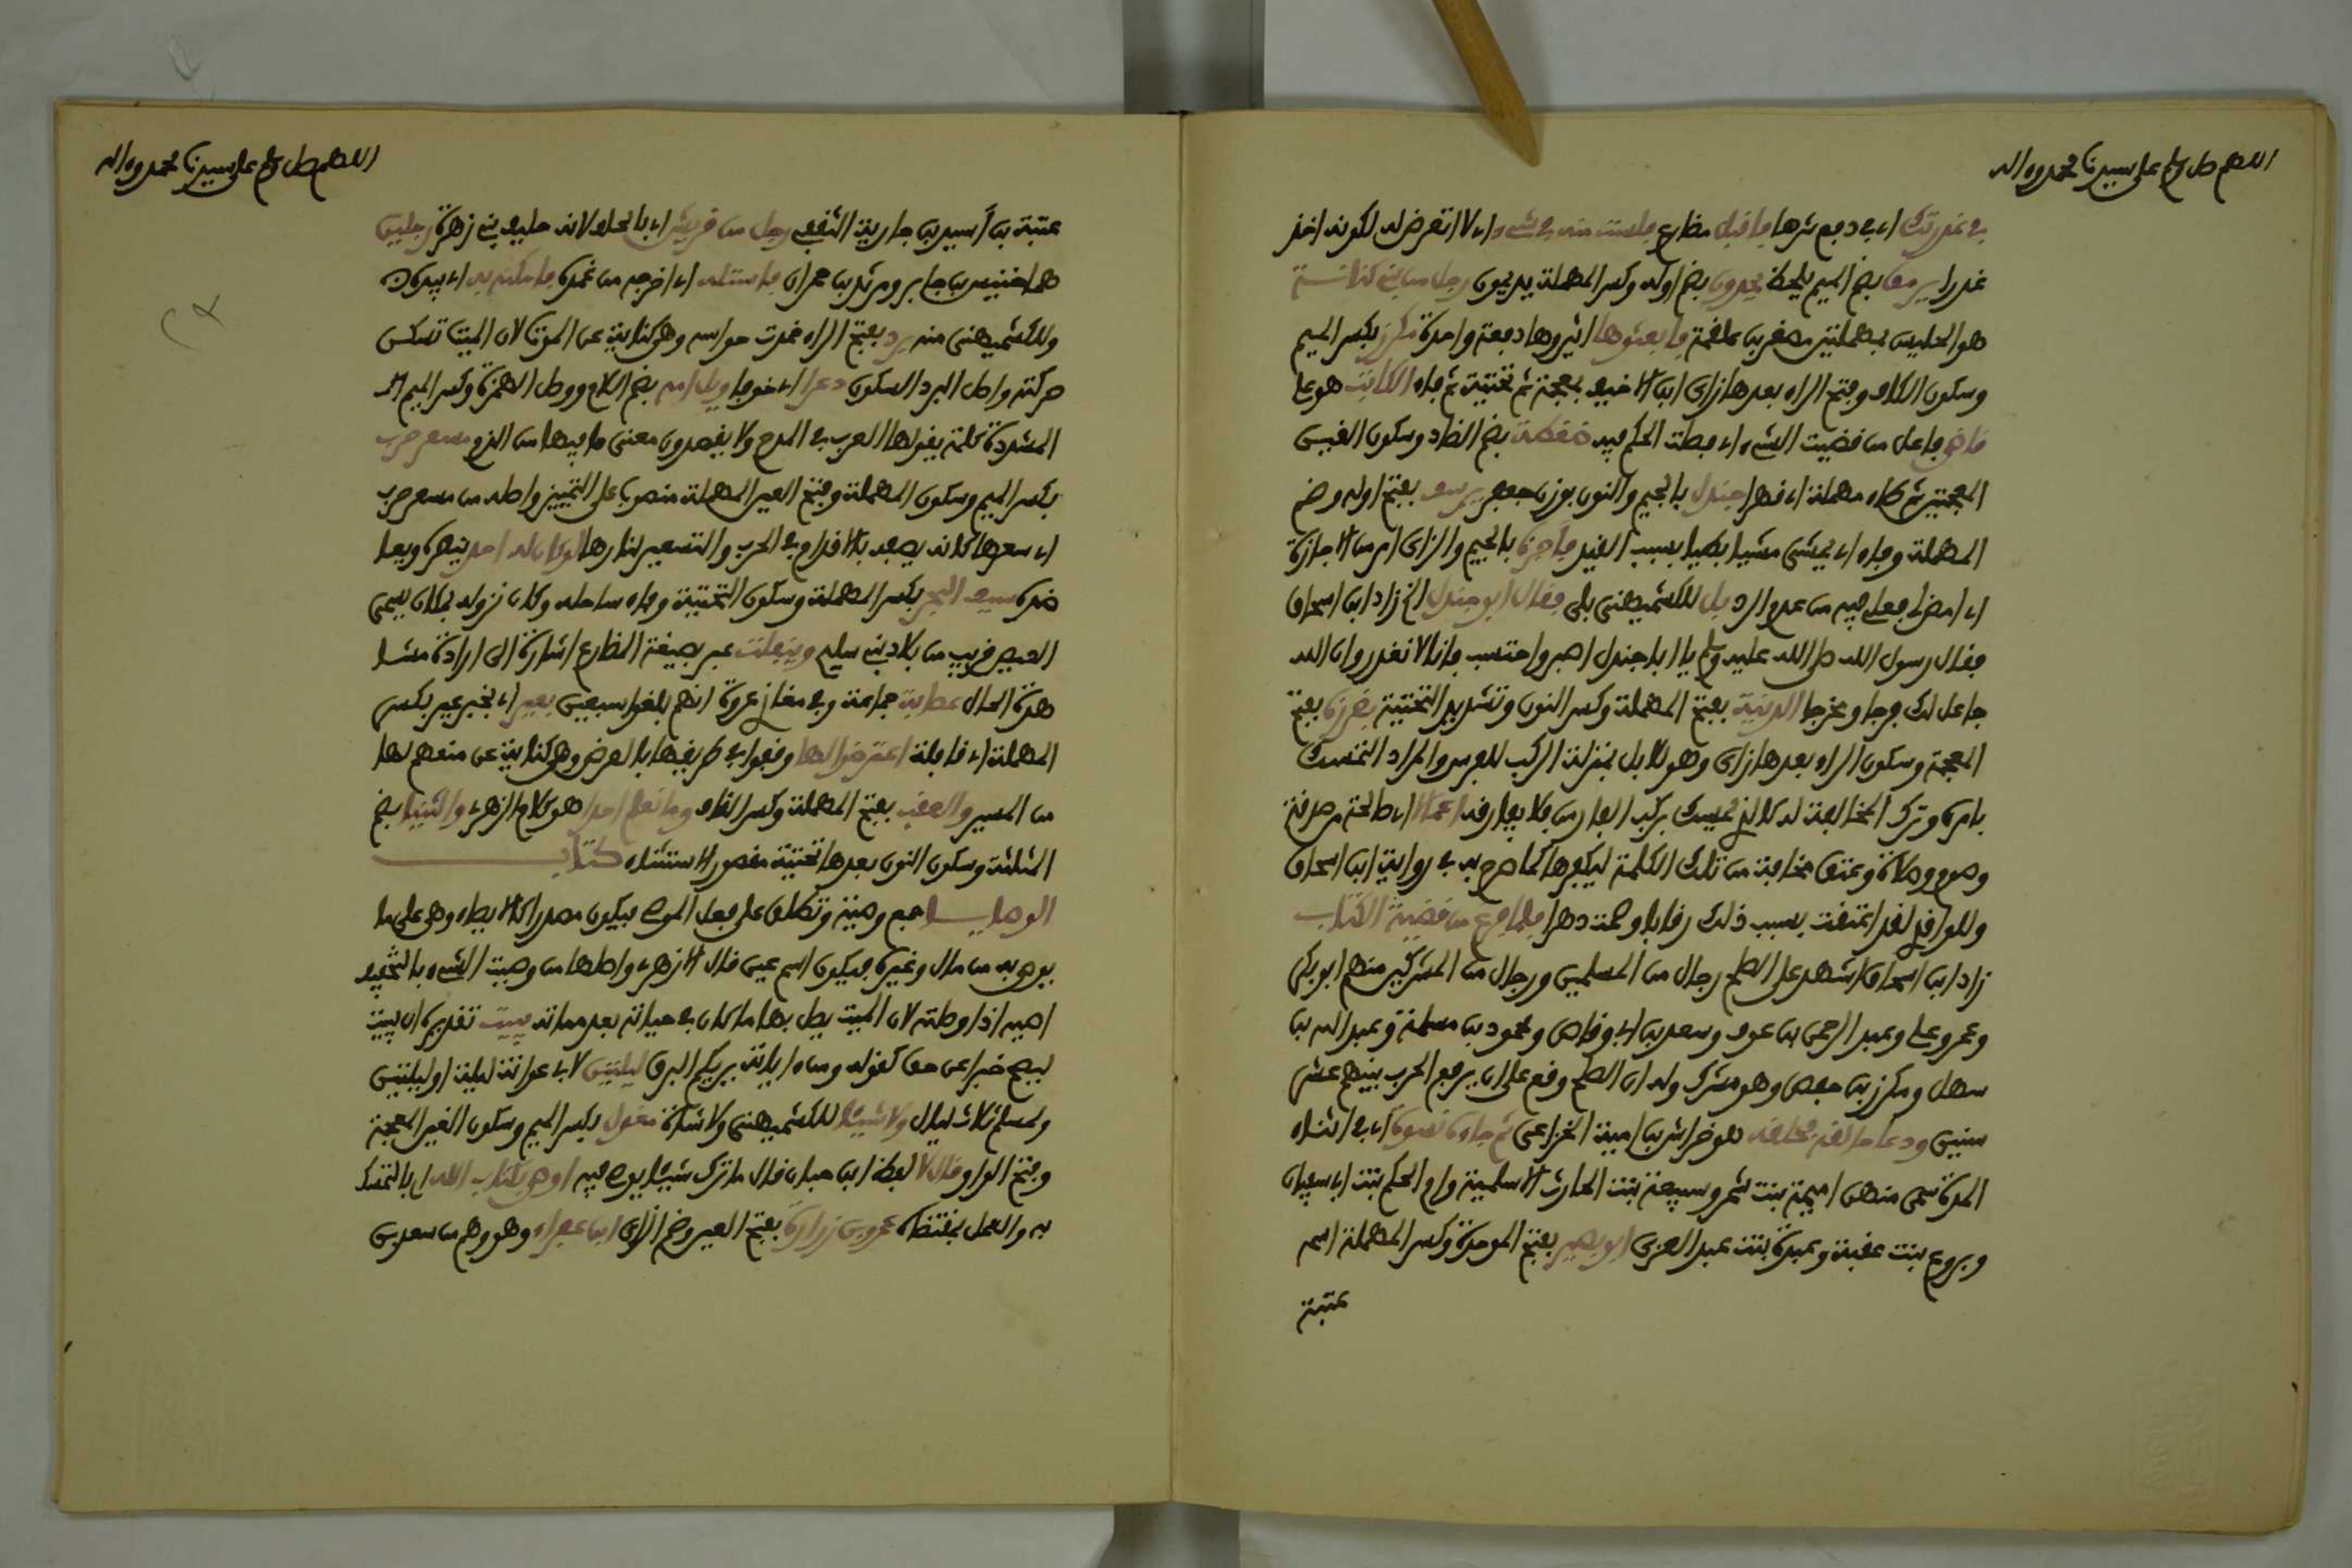 اللهم صل وسلم على سيدنا محمد وءاله
في غدرتك أي في دفع شرها فاقبل مضارع فلست منه في شيء أي لا أتعرض له لكونه أخذ
غدرا يرمق بضم الميم يلحظ يحدون بضم أوله وكسر المهملة يديمون رجل من بني كنانة
هو الحليس بمهملتين مصغر بن علقمة فابعثوها أثيروها دفعة واحدة مكرز بكسر الميم
وسكون الكاف وفتح الراء بعدها زاي ابن الأخيف بمعجمة ثم تحتية ثم فاء الكاتب هو علي
قاضى فاعل من قضيت الشيء أي فصلت الحكم فيه ضغطة بضم الضاد وسكون الغين
المعجمتين ثم طاء مهملة أي قهرا جندل بالجيم والنون بوزن جعفر يرسف بفتح أوله وضم
المهملة وفاء أي يمشي مشيا بطيا بسبب القيد فأجزه بالجيم والزاي أمر من الاجازة
أي امض لي فعلي فيه من عدم الرد بل للكشميهني بلى فقال أبو جندل الخ زاد ابن إسحاق
فقال رسول الله صلى الله عليه وسلم يا أبا جندل اصبر واحتسب فإنا لا نغدر وان الله
جاعل لك فرجا ومخرجا الدنية بفتح المهملة وكسر النون وتشديد التحتية بغرزه بفتح
المعجمة وسكون الراء بعدها زاي وهو للابل بمنزلة الركب للفرس والمراد التمسك
بامره وترك المخالفة له كالذي يمسك بركب الفارس فلا يفارقه أعمالا أي صالحة من صدقة
وصوم وصلاة وعتق مخافة من تلك الكلمة ليكفرها كما صرح به في رواية ابن إسحاق
وللواقدي لقد اعتقت بسبب ذلك رقابا وصمت دهرا فلما فرغ من قضية الكتاب
زاد ابن إسحاق أشهد على الصلح رجال من المسلمين ورجال من المشركين منهم أبو بكر
وعمر وعلي وعبد الرحمن بن عوف وسعد بن أبي وقاص ومحمود بن مسلمة وعبد الله بن
سهل ومكرز بن حفص وهو مشرك وله ان الصلح وقع على ان يرفع الحرب بينهم عشر
سنين ودعا حالقه فحلقه هو خراش بن أمية الخزاعي ثم جاءه نسوة أي في أثناء
المدة سمي منهن أميمة بنت بشر وسبيعة بنت الحارث الأسلمية وام الحكم بنت أبي سفيان
وبروع بنت عقبة وعبدة بنت عبد العزى أبو بصير بفتح الموحدة وكسر المهملة اسمه
عتبة
اللهم صل وسلم على سيدنا محمد وءاله
عتبة بن أسيد بن جارية الثقفي رجل من قريش أي بالحلف لانه حليف بني زهرة رجلين
هما خنيس بن جابر ومرثد بن حمران فاستله أي أخرجه من غمده فامكنه به أي بيده
وللكشميهني منه برد بفتح الراء خمدت حواسه وهي كناية عن الموت لان الميت تسكن
حركته وأصل البرد السكون دعرا أي خوفا ويل امه بضم اللام ووصل الهمزة وكسر الميم
المشددة كلمة يقولها العرب في المدح ولا يقصدون معنى ما فيها من الذم مسعر حرب
بكسر الميم وسكون المهملة وفتح العين المهملة منصوبا على التمييز وأصله من مسعر حرب
أي سعرها كانه يصفه بالاقدام في الحرب والتسعير لنارها لو كان له أحد ينصره ويعا
ضده سيف البحر بكسر المهملة وسكون التحتية وفاء ساحله وكان نزوله بمكان يسمى
العيص قريب من بلاد بني سليم وينفلت عبر بصيغة المضارع اشارة الى ارادة مشا
هدة الحال عصابة جماعة وفي مغازي عروة انهم بلغوا سبعين بعير أي بخبر عير بكسر
المهملة أي قافلة اعترضوا لها وقفوا في طريقها بالعرض وهي كناية عن منعهم لها
من المسير والعقب بفتح المهملة وكسر القاف وما نعلم أحدا هو كلام الزهري والثنيا بضم
المثلثة وسكون النون بعدها تحتية مقصور الاستثناء كتاب
الوصايا جمع وصية وتطلق على فعل الموصي فيكون مصدرا كالايصاء وهي على ما
يوصى به من مال وغيره فيكون اسم عين قال الأزهري وأصلها من وصيت الشيء بالتخفيف
أصيه اذا وصلته لان الميت يصل بها ما كان في حياته بعد مماته يبيت تقديره ان يبيت
ليصح خبرا عن حق كقوله ومن ءاياته يريكم البرق ليلتين لأبي عوانة ليلة أو ليلتين
ولمسلم ثلاث ليال ولا شيئا للكشميهني ولا شاة مغول بكسر الميم وسكون الغين المعجمة
وفتح الواو قال لا لفظ ابن حبان قال ما ترك شيئا يوصي فيه أوصى بكتاب الله أي بالتمسك
به والعمل بمقتضاه عمرو بن زرارة بفتح العين وضم الزاي ابن عفراء وهو وهم من سعد بن